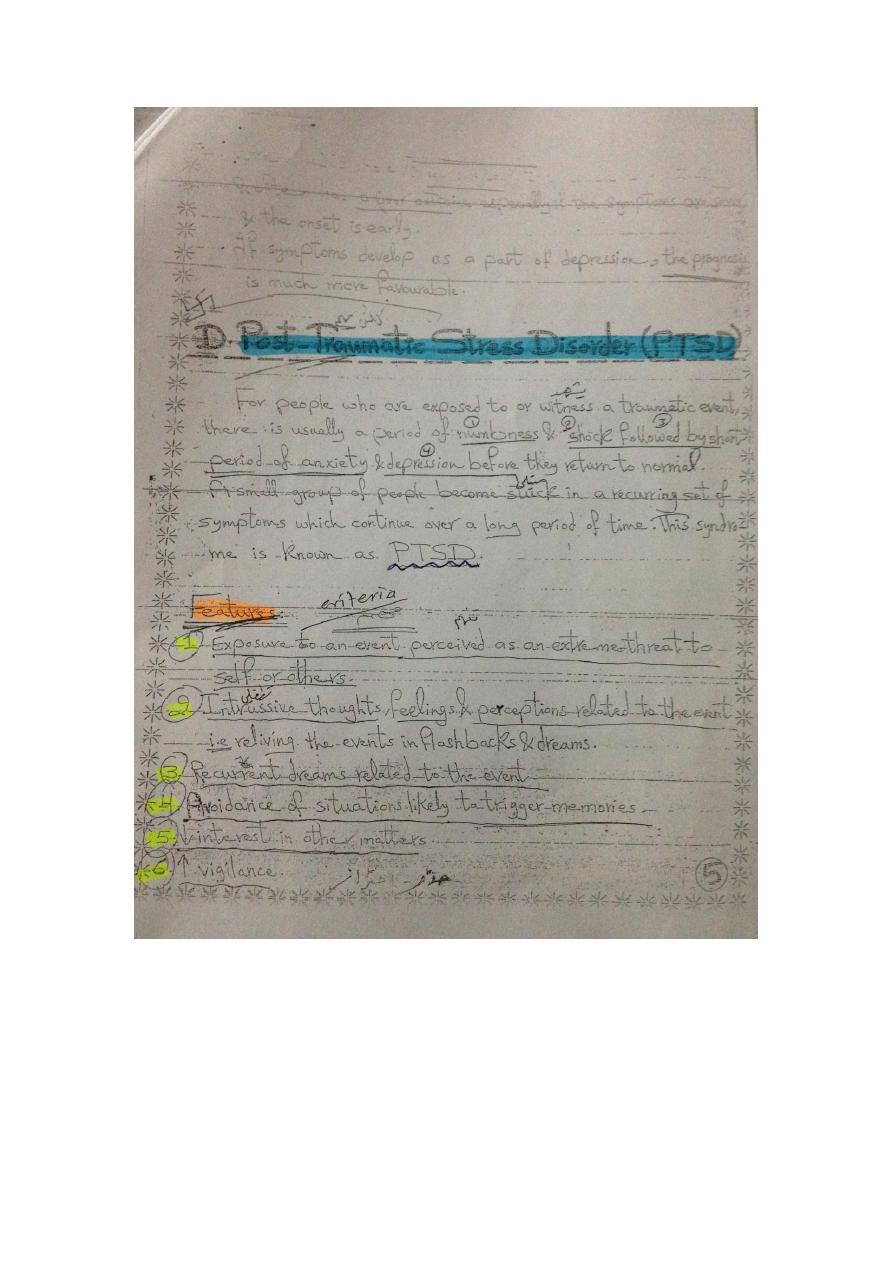 especially if the symptoms are
& the onset is early.
If symptoms develop as a part of depression, the prognosis
is much more favourable.
D. Post-Traumatic Stress Disorder (PTSD)
يشهد
For people who are exposed to or witness a traumatic event,
① ② ③
there is usually a period of numbness & shock followed by short
④
period of anxiety & depression before they return to normal.
A small group of people become stuck in a recurring set of
symptoms which continue over a long period of time. This syndro-
me is Known as PTSD.
Featurs: criteria
1 Exposure to an event perceived as an extreme threat to
self or others.
2 Intrussive thoughts, feelings & perceptions related to the event
i.e reliving the events in flashbacks & dreams.
3 Recurrent dreams related to the event
4 Avoidance of situations likely to trigger memories
5 ↓ interest in other matters
6 ↑ vigilance.
5